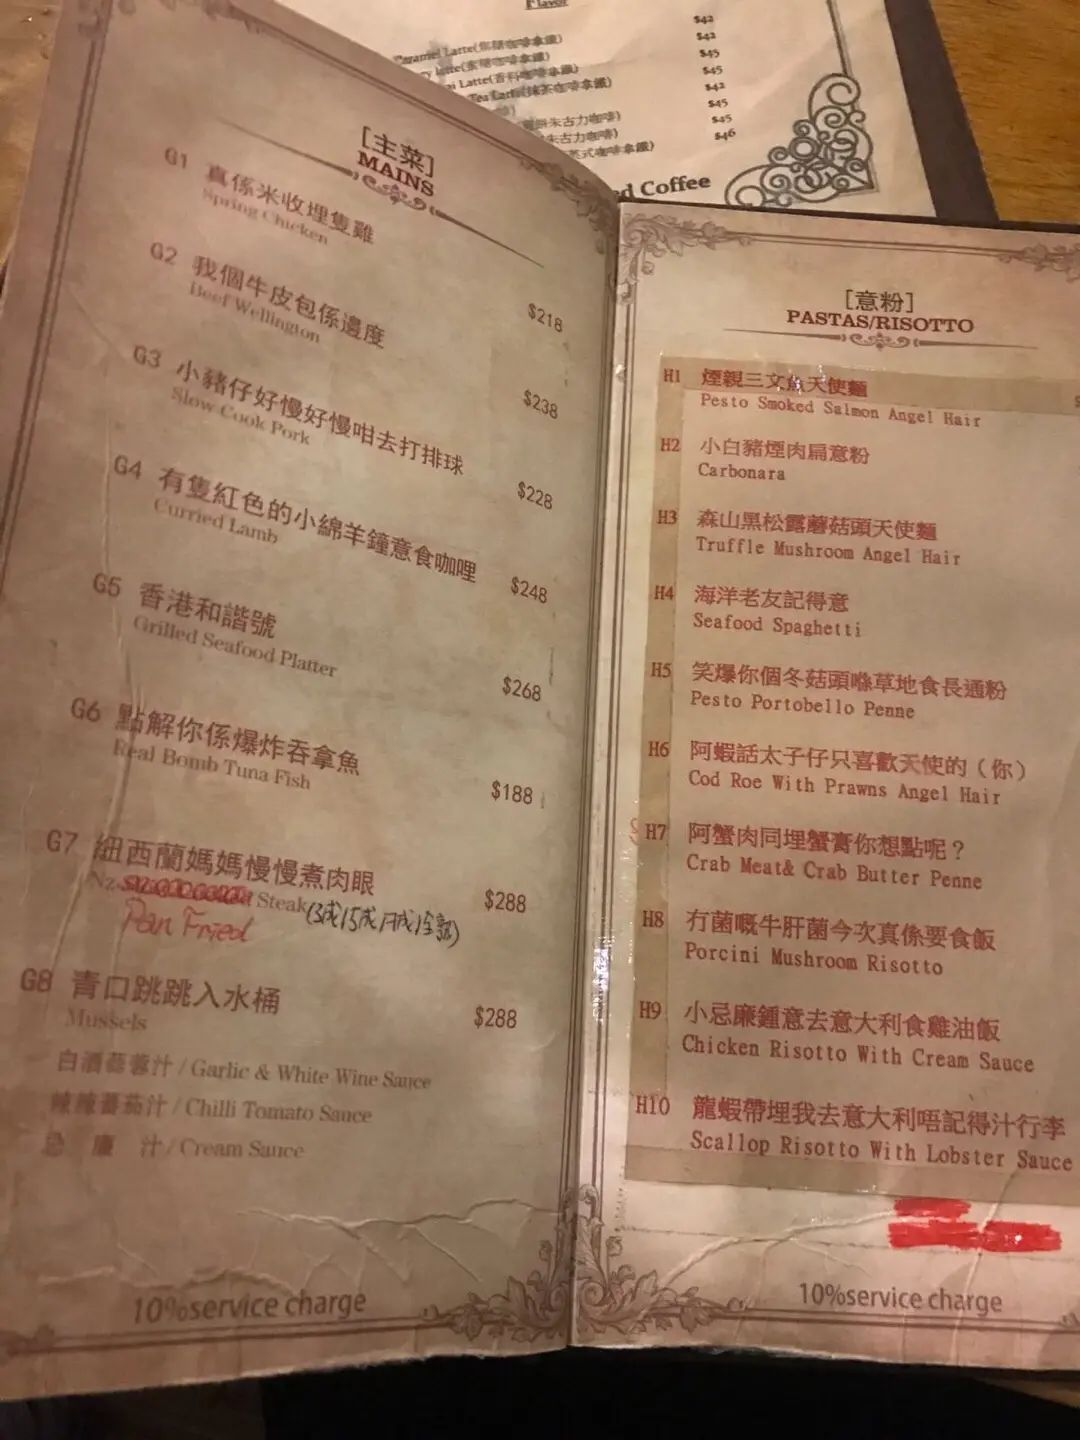 Flavor
Caramel Latte(焦糖咖啡拿鐵)
$42
$42
$45
$45
$42
$45
$45
$46
Coffee
[主菜]
MAINS
G1 真係米收埋隻雞
Spring Chicken
$218
G2 我個牛皮包係邊度
Beef Wellington
$238
G3 小豬仔好慢好慢咁去打排球
Slow Cook Pork
$228
G4 有隻紅色的小綿羊鐘意食咖哩
Curried Lamb
$248
G5 香港和諧號
Grilled Seafood Platter
$268
G6 點解你係爆炸吞拿魚
Real Bomb Tuna Fish
$188
G7 紐西蘭媽媽慢慢煮肉眼
$288
Nz Steak(3成/5成/7成/全熟)
Pan Fried
G8 青口跳跳入水桶
$288
Mussels
白酒蒜蓉汁 / Garlic & White Wine Sauce
辣辣蕃茄汁 / Chilli Tomato Sauce
忌 廉 汁 / Cream Sauce
10%service charge
[意粉]
PASTAS/RISOTTO
H1 煙親三文魚天使麵
Pesto Smoked Salmon Angel Hair
H2 小白豬煙肉扁意粉
Carbonara
H3 森山黑松露蘑菇頭天使麵
Truffle Mushroom Angel Hair
H4 海洋老友記得意
Seafood Spaghetti
H5 笑爆你個冬菇頭喺草地食長通粉
Pesto Portobello Penne
H6 阿蝦話太子仔只喜歡天使的（你）
Cod Roe With Prawns Angel Hair
H7 阿蟹肉同埋蟹膏你想點呢？
Crab Meat& Crab Butter Penne
H8 冇菌嘅牛肝菌今次真係要食飯
Porcini Mushroom Risotto
H9 小忌廉鍾意去意大利食雞油飯
Chicken Risotto With Cream Sauce
H10 龍蝦帶埋我去意大利唔記得汁行李
Scallop Risotto With Lobster Sauce
10%service charge